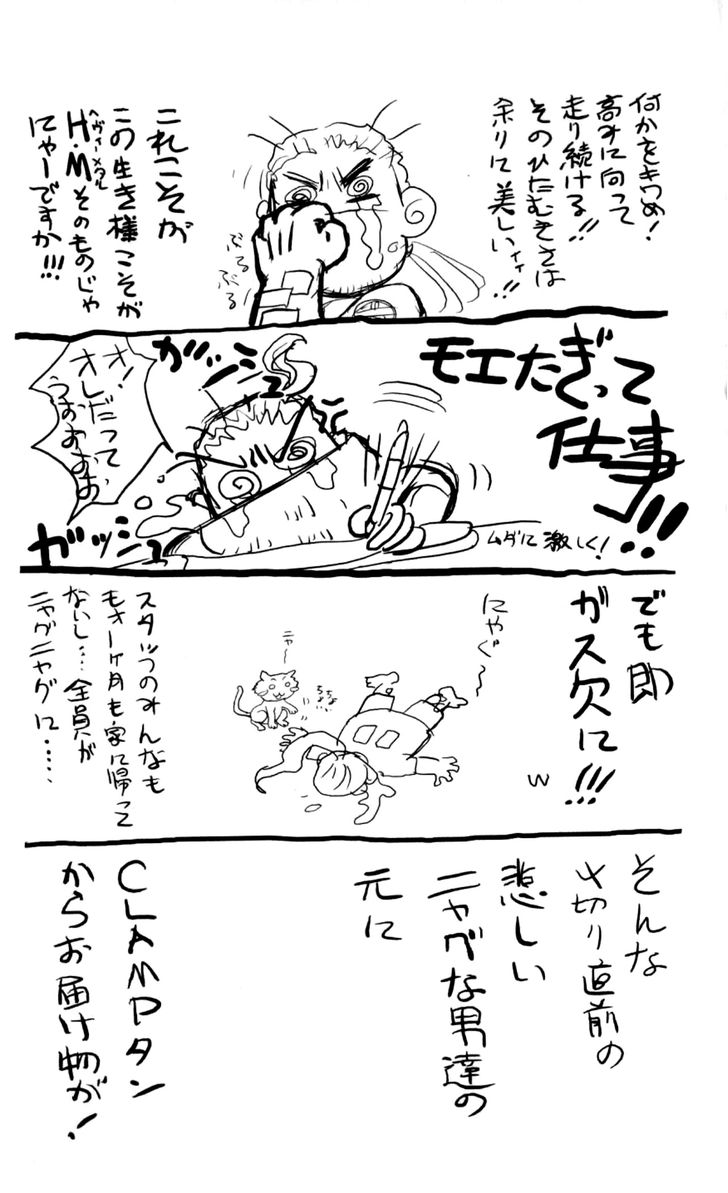 何かをきわめ!
高みに向って
走り続ける!!
そのひたむきさは
余りに美しいィィ!!
ぶるぶる
これこそが
この生き様こそが
ヘヴィーメタル
H・Mそのものじゃ
にゃーですか!!!
モエたぎって
仕事!!
ムダに激しく!
ガッシュ
ガッシュ
オ!
オレだって
うおおおお
でも即
ガス欠に!!!
w
にゃぐ〜
ニャー
スタッフのみんなも
もォ一ヶ月も家に帰って
ないし……全員が
ニャグニャグに……
そんな
〆切り直前の
悲しい
ニャグな男達の
元に
CLAMPタン
からお届け物が!